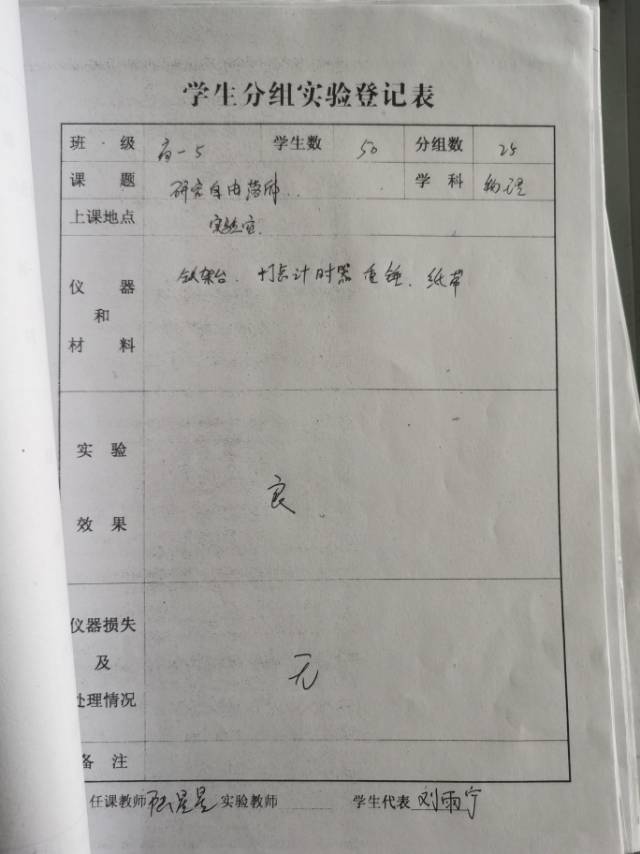 学生分组实验登记表
班·级 高一5 学生数 50 分组数 25
课题 研究自由落体.. 学科 物理
上课地点 实验室.
仪器和材料 铁架台.打点计时器 重锤.纸带
实验效果 良
仪器损失及处理情况 无
备注
任课教师 星星 实验教师 学生代表 刘雨宁